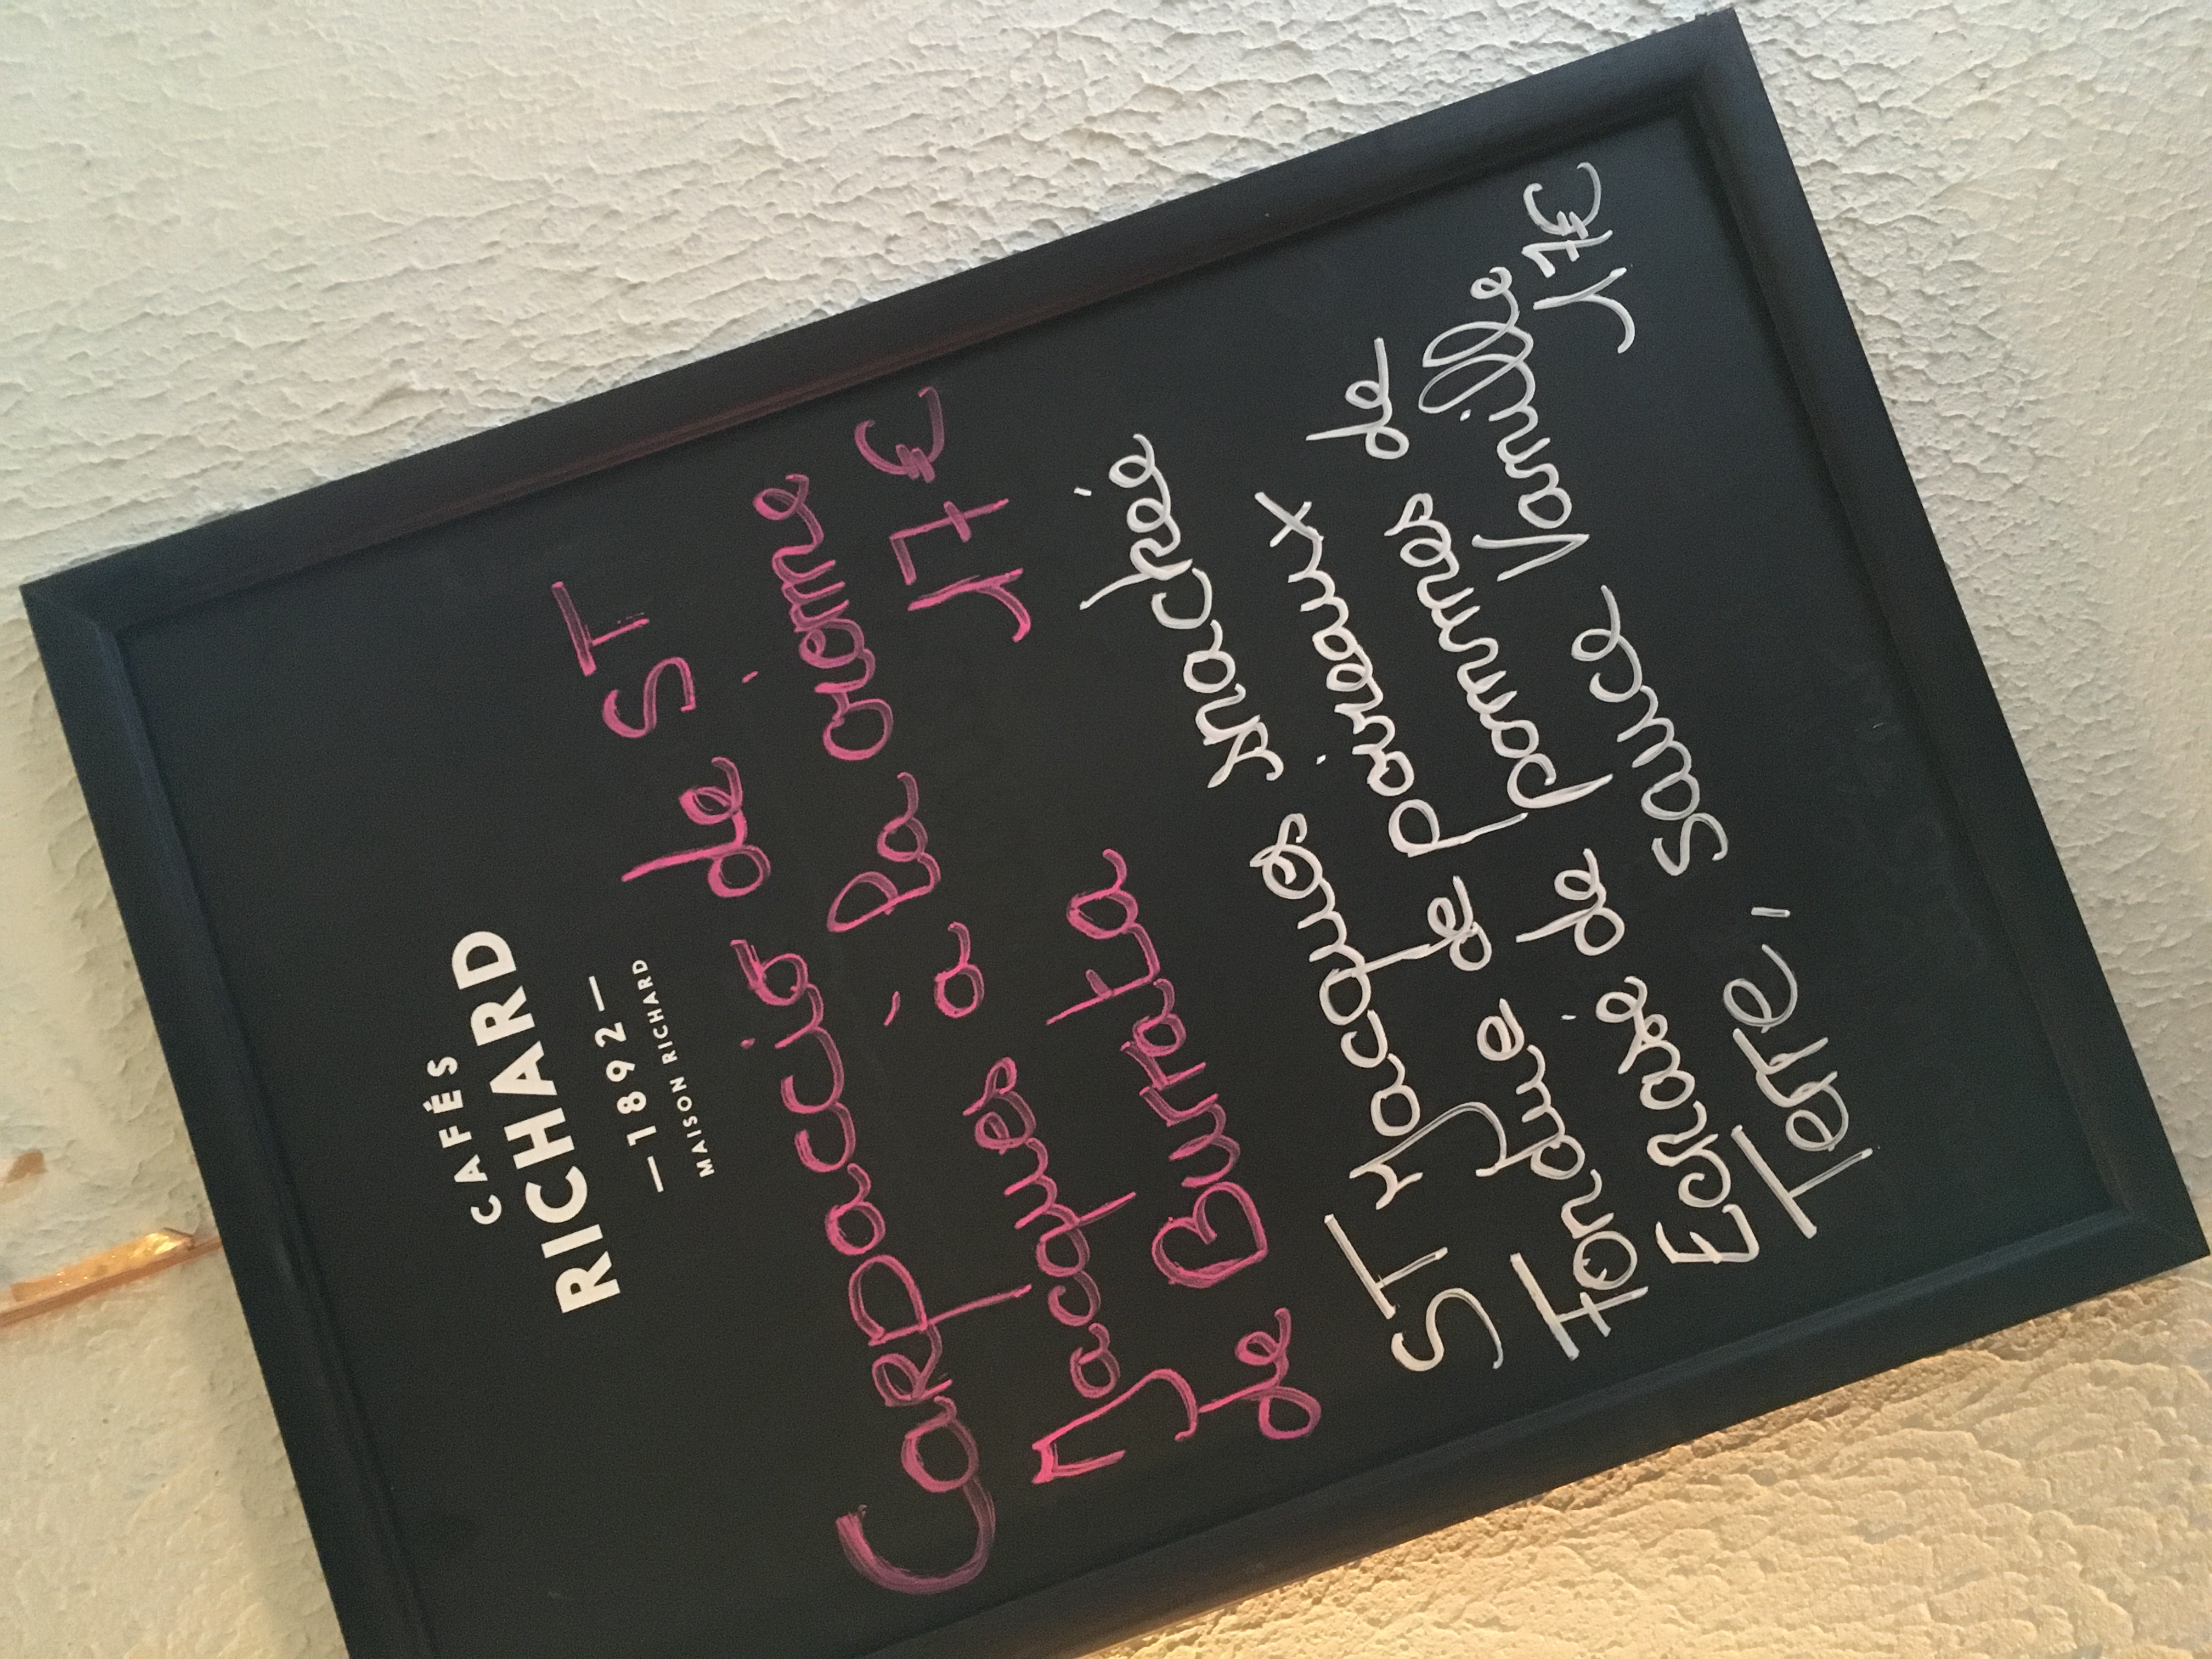 CAFÉS
RICHARD
—1892—
MAISON RICHARD
Carpaccio de ST
Jacques à la crème
de Burrata 17€
ST Jacques snackée
Fondue de poireaux
Ecrasé de pommes de
Terre, sauce Vanille
17€